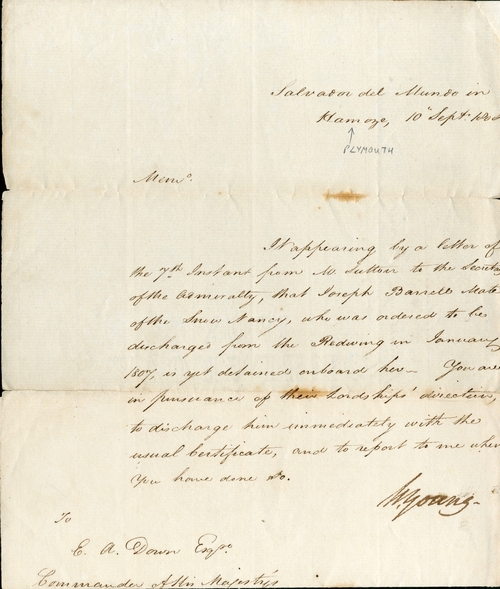 Salvador del Mundo in
Hamoze, 10th Septr. 180
PLYMOUTH
Memo.
It appearing by a letter of
the 7th Instant from Mr to the Secreta
of the Admiralty, that Joseph Barrell Mate
of the Snow Nancy, who was ordered to be
discharged from the Redwing in January
1807, is yet detained onboard her— You are
in pursuance of their Lordships' direction,
to discharge him immediately with the
usual Certificate, and to report to me when
You have done so.
W. Young
To
E. A. Down Esqr.
Commander of His Majesty's